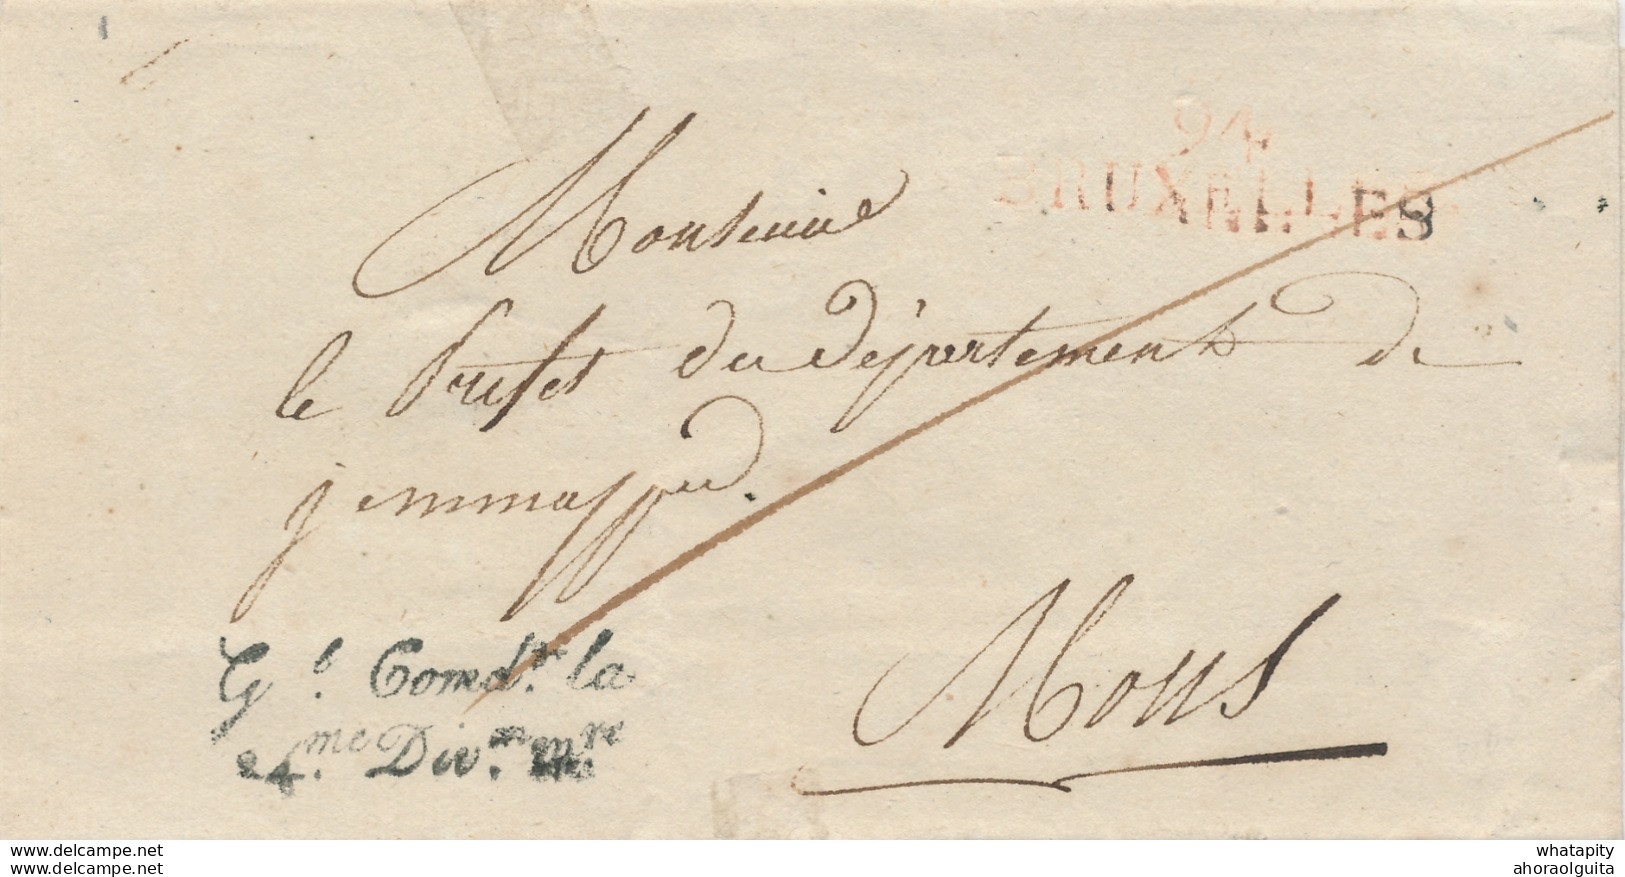 94
BRUXELLES
Monsieur
le Préfet du département de
jemmappes.
Mons
G.l Comd.nt la
24.me Div.on m.re
whatapity
www.delcampe.net
ahoraolguita